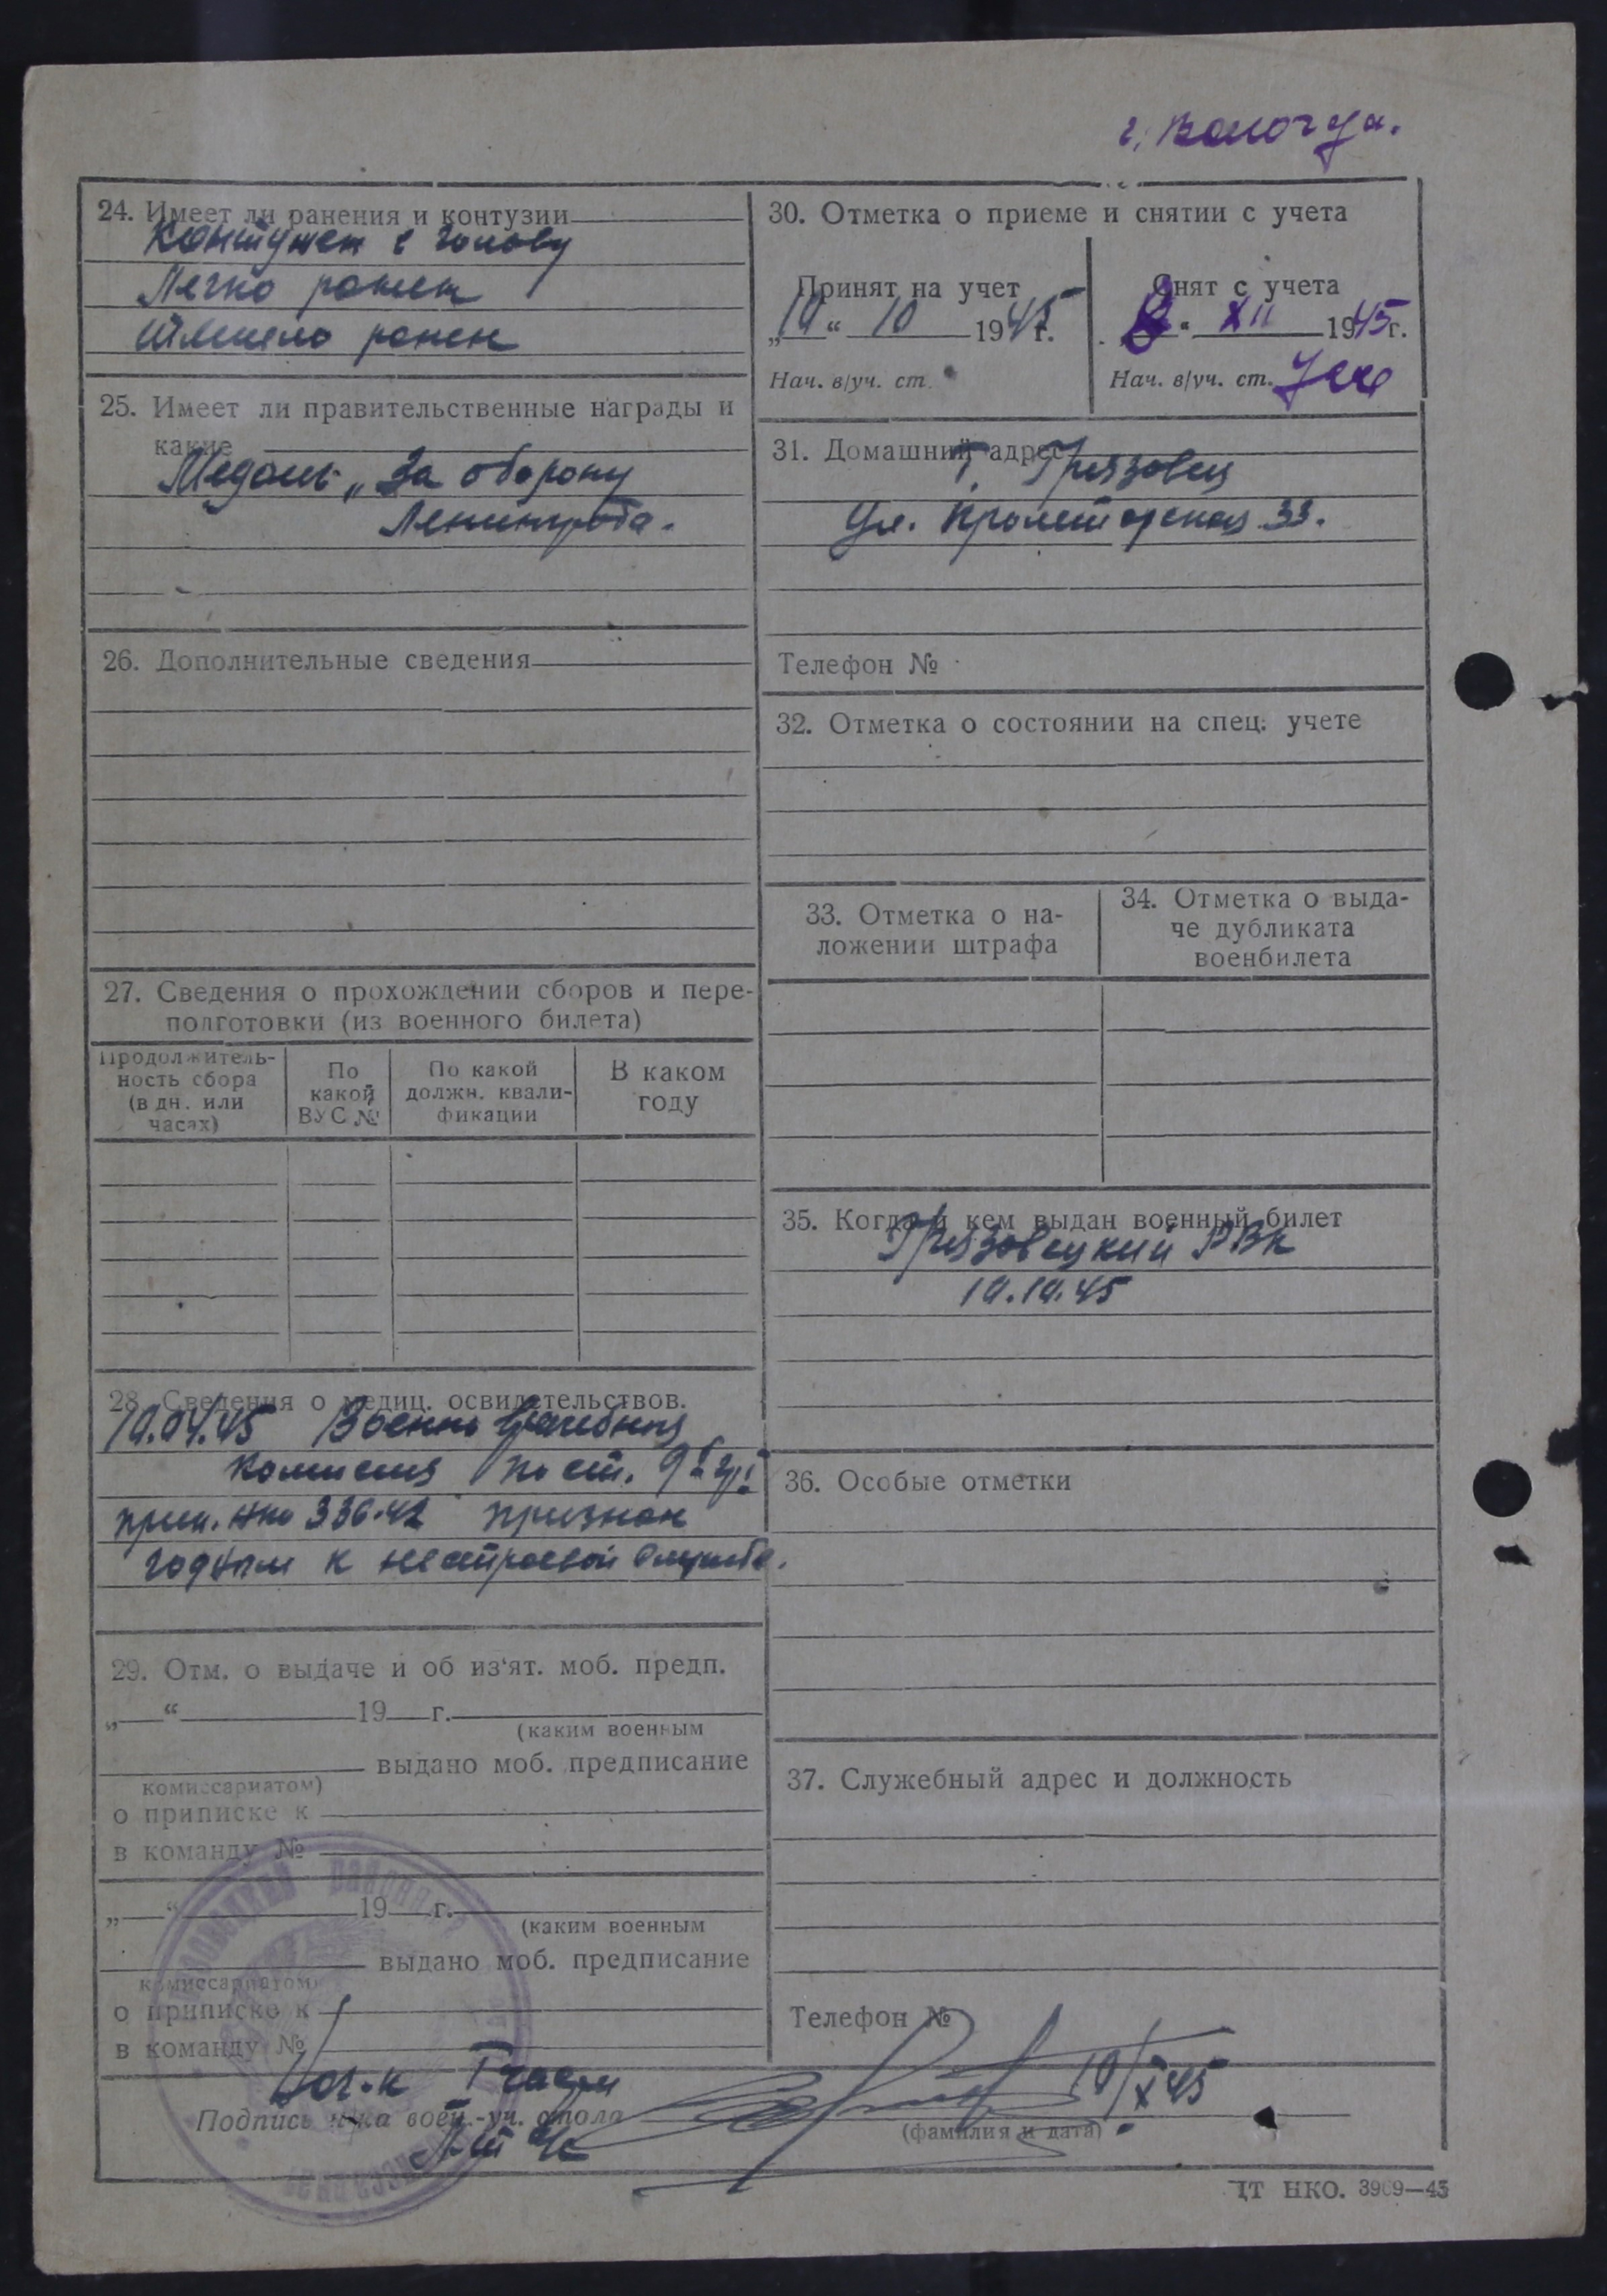 г. Вологда.
24. Имеет ли ранения и контузии
Контужен в голову
Легко ранен
тяжело ранен
25. Имеет ли правительственные награды и
какие
Медаль „За оборону
Ленинграда.
26. Дополнительные сведения
27. Сведения о прохождении сборов и пере-
подготовки (из военного билета)
Продолжитель-
ность сбора
(в дн. или
часах)
По
какой
ВУС №
По какой
должн. квали-
фикации
В каком
году
28. Сведения о медиц. освидетельствов.
10.04.45 Военно врачебная
комиссия по ст. 9
прик. НКО 336-42 признан
годным к нестроевой службе.
29. Отм. о выдаче и об из‘ят. моб. предп.
„ “ 19 г.
(каким военным
выдано моб. предписание
комиссариатом)
о приписке к
в команду №
„ “ 19 г.
(каким военным
выдано моб. предписание
комиссариатом)
о приписке к
в команду №
Нач-к 1 части
Подпись н-ка воен.-уч. стола
(фамилия и дата)
10/X 45
30. Отметка о приеме и снятии с учета
Принят на учет
„10“ 10 1945 г.
Нач. в/уч. ст.
Снят с учета
8 “ XII 1945 г.
Нач. в/уч. ст.
31. Домашний адрес
г. Грязовец
ул. Пролетарская 33.
Телефон №
32. Отметка о состоянии на спец. учете
33. Отметка о на-
ложении штрафа
34. Отметка о выда-
че дубликата
военбилета
35. Когда и кем выдан военный билет
Грязовецкий РВК
10.10.45
36. Особые отметки
37. Служебный адрес и должность
Телефон №
ЦТ НКО. 3909—45